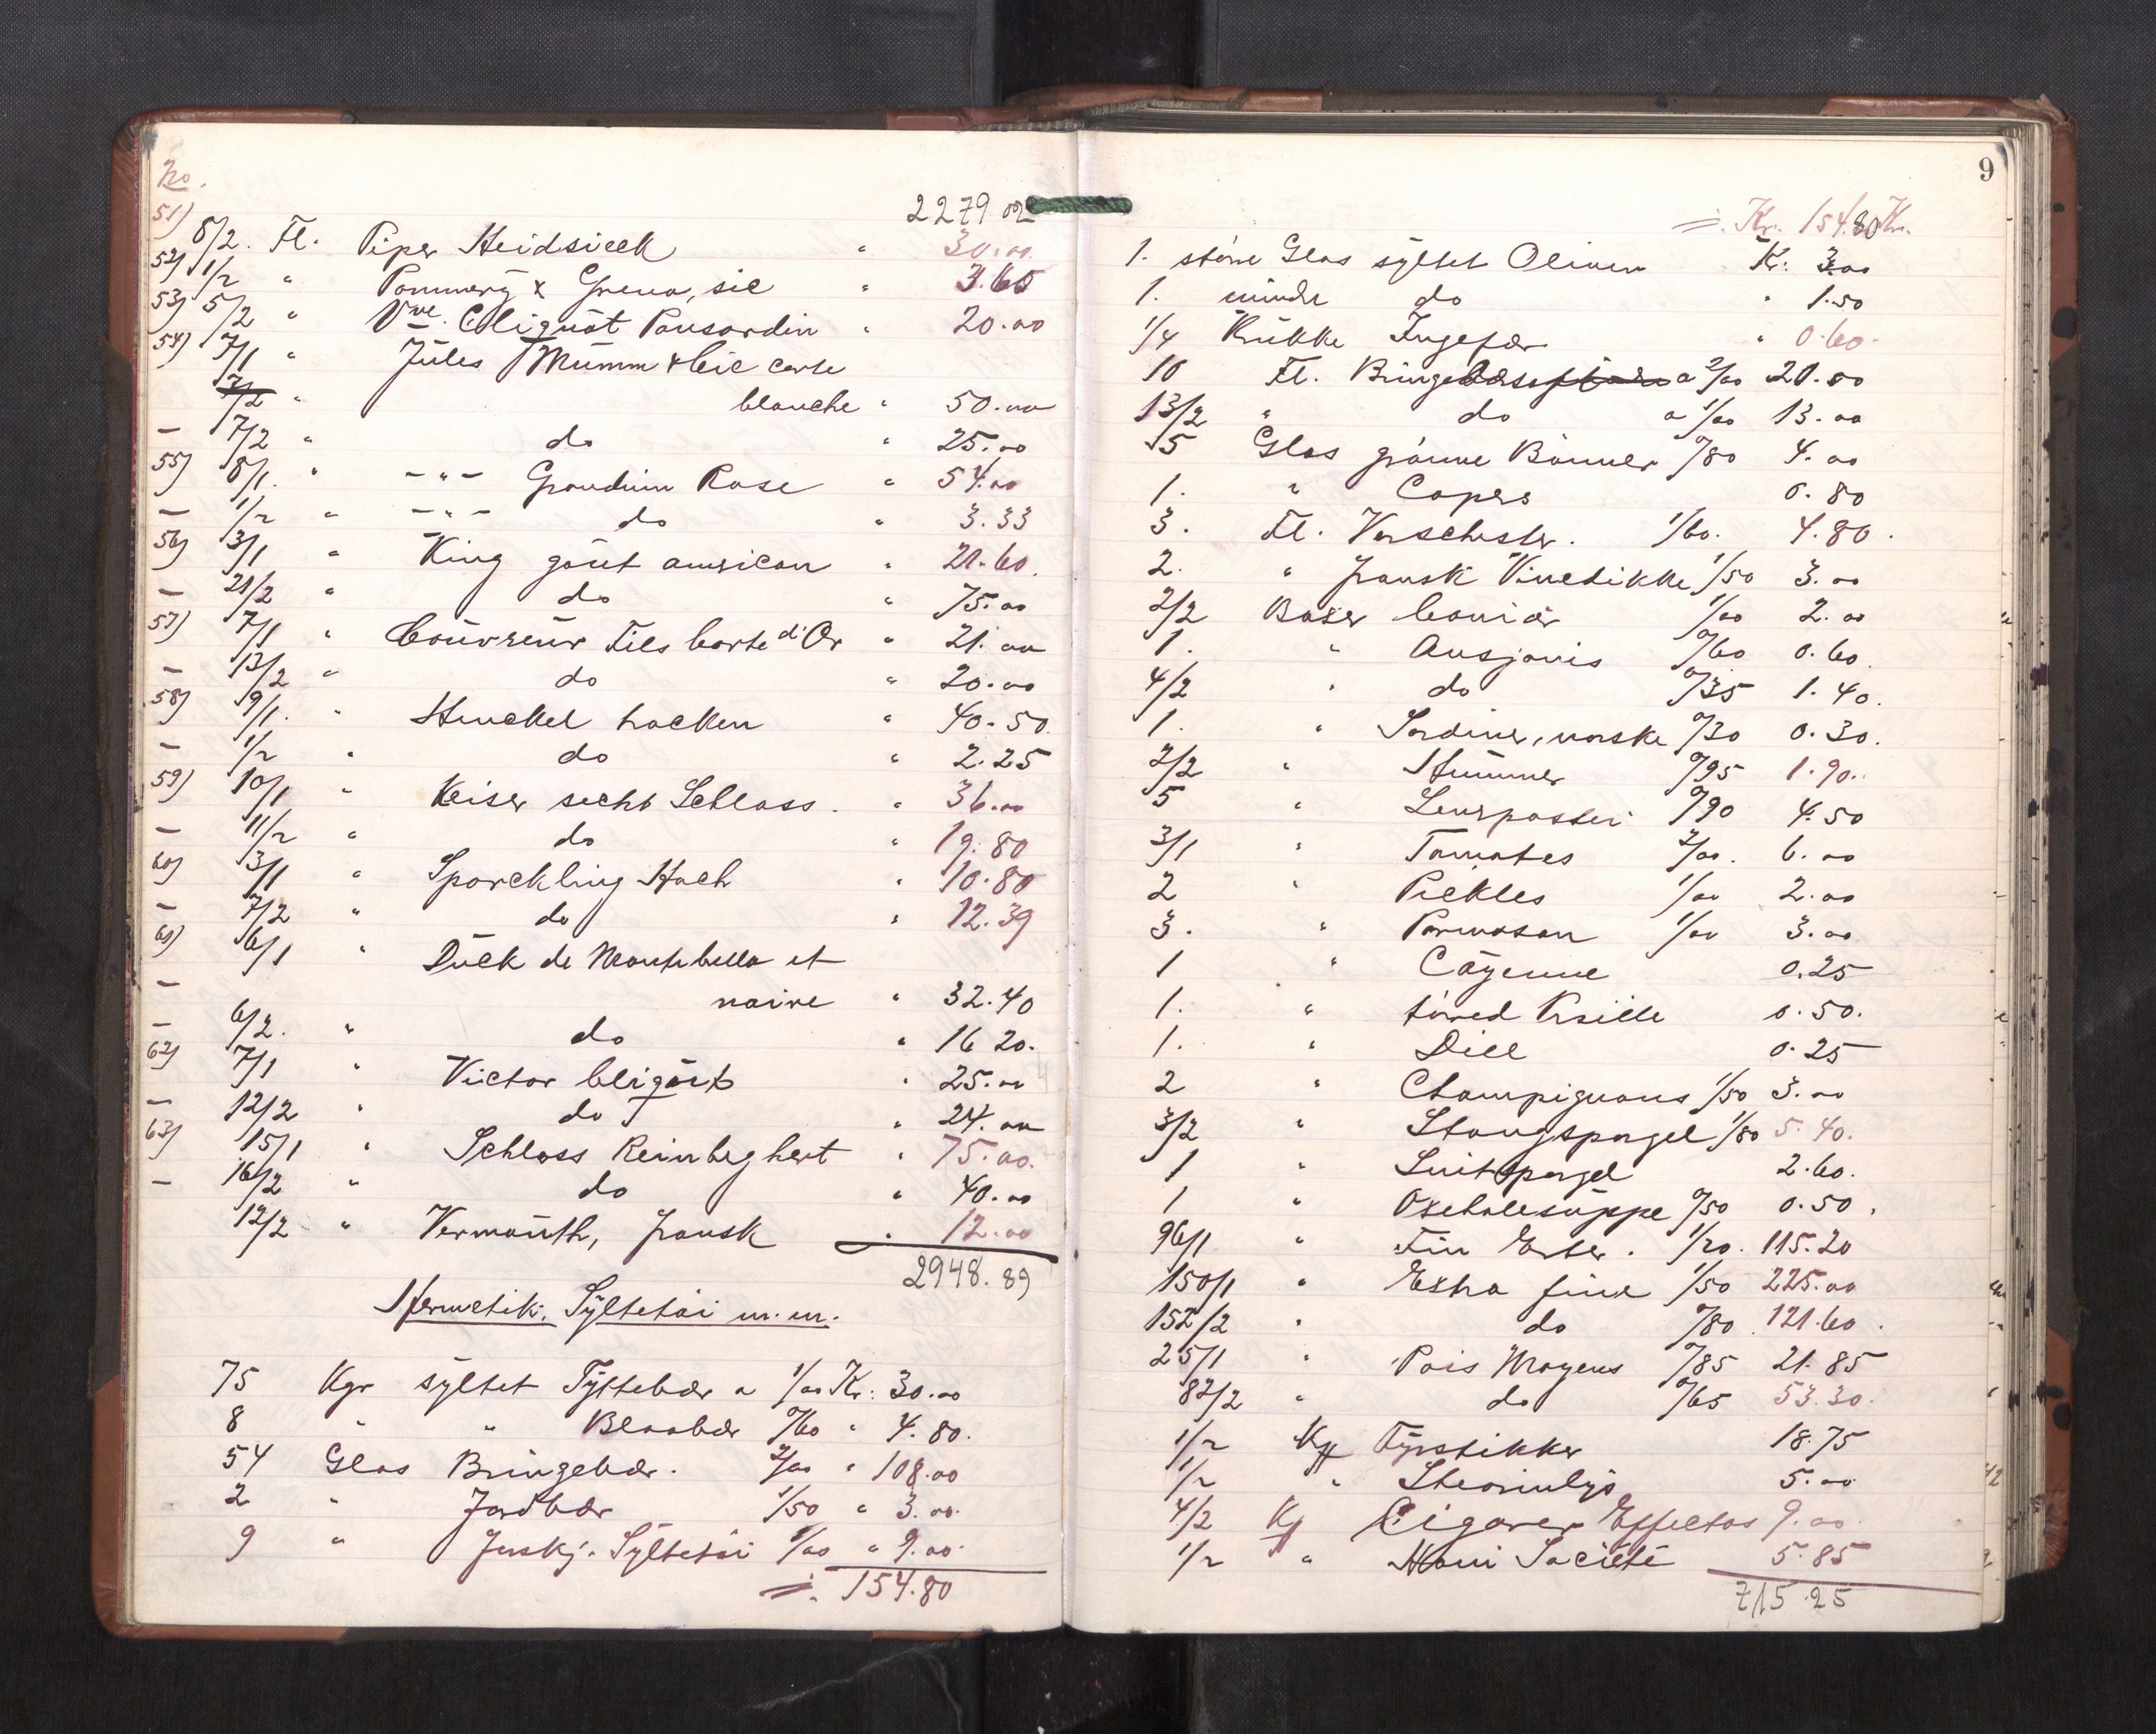 No.
2279 02
51) 5/2. Fl. Piper Heidsieck " 30.00
52) 1/2 " Pommery & Greno, sec " 3.60
53) 5/2 " Vve. Cliquot Ponsardin " 20.00
54) 7/1 " Jules Mumm & Cie carte
7/2 " blanche " 50.00
— 7/2 " do " 25.00
55) 8/1. " -"- Grandvin Rose " 54.00
— 1/2 " -"- do " 3.33
56) 3/1 " King goût american " 21.60.
— 21/2 " do " 75.00
57) 7/1 " Couvreur Fils Carte d'Or " 21.00
— 13/2 " do " 20.00
58) 9/1. " Henckel trocken " 40.50
— 1/2 " do " 2.25
59) 10/1 " Keiser secht Schloss. " 36.00
— 11/2 " do " 19.80
60) 3/1 " Sparckling Hoch " 10.80
— 7/2 " do " 12.39
61) 6/1 " Duck de Montebello et
— noire " 32.40
6/2. " do " 16 20.
— 62) 7/1 " Victor Cliqout " 25.00
— 12/2 " do " 24.00
63) 15/1 " Schloss Reinbeghert " 75.00.
— 16/2 " do " 40.00
12/2 " Vermouth, fransk " 12.00
2948.89
Hermetik. Syltetøi m.m.
75 Kgr syltet Tyttebær a 1/00 Kr: 30.00
8 " " Blaabær 0/60 " 4.80.
54 Glas Bringebær. 2/00 " 108.00
2 " Jordbær 1/50 " 3.00.
9 " Forskj. Syltetøi 1/00 " 9.00.
=. 154.80
9
=. Kr. 154.80 Kr.
1. større Glas syltet Oliven Kr: 3.00
1. mindre do " 1.50
1/4 Krukke Ingefær " 0.60.
10 Fl. Bringebær a 2/00 20.00
13/2 " do a 1/00 13.00
5 Glas grønne Bønner 0/80 4.00
1. " Capers 0.80
3. Fl. Vorschester. 1/60. 4.80.
2. " fransk Vinedikke 1/50 3.00
2/2 Boxer Caviar 1/00 2.00
1. " Ansjovis 0/60 0.60.
4/2 " do 0/35 1.40.
1. " Sardiner, norske 0/30 0.30.
2/2 " Hummer 0/95 1.90.
5 " Leverpostei 0/90 4.50
3/1 " Tomates 2/00. 6.00
2 " Pickles 1/00 2.00
3. " Parmasan 1/00 3.00
1 " Cayenne 0.25
1. " tørred Krsille 0.50.
1. " Dill 0.25
2 " Champignons 1/50 3.00
3/2 " Stangspargel 1/80 5.40.
1 " Snitspargel 2.60.
1 " Oxehalesuppe 0/50 0.50.
96/1 " Fin Erter. 1/20. 115.20
150/1 " Extra fine 1/50 225.00
152/2 " do 0/80. 121.60.
25/1 " Pois Moyens 0/85 21.85
82/2 " do 0/65 53.30.
1/2 Ks Fyrstikker 18.75
1/2 " Stearinlys 5.00
4/2 Ks Cigarer Effectos 9.00
1/2 " Societé 5.85
715.25